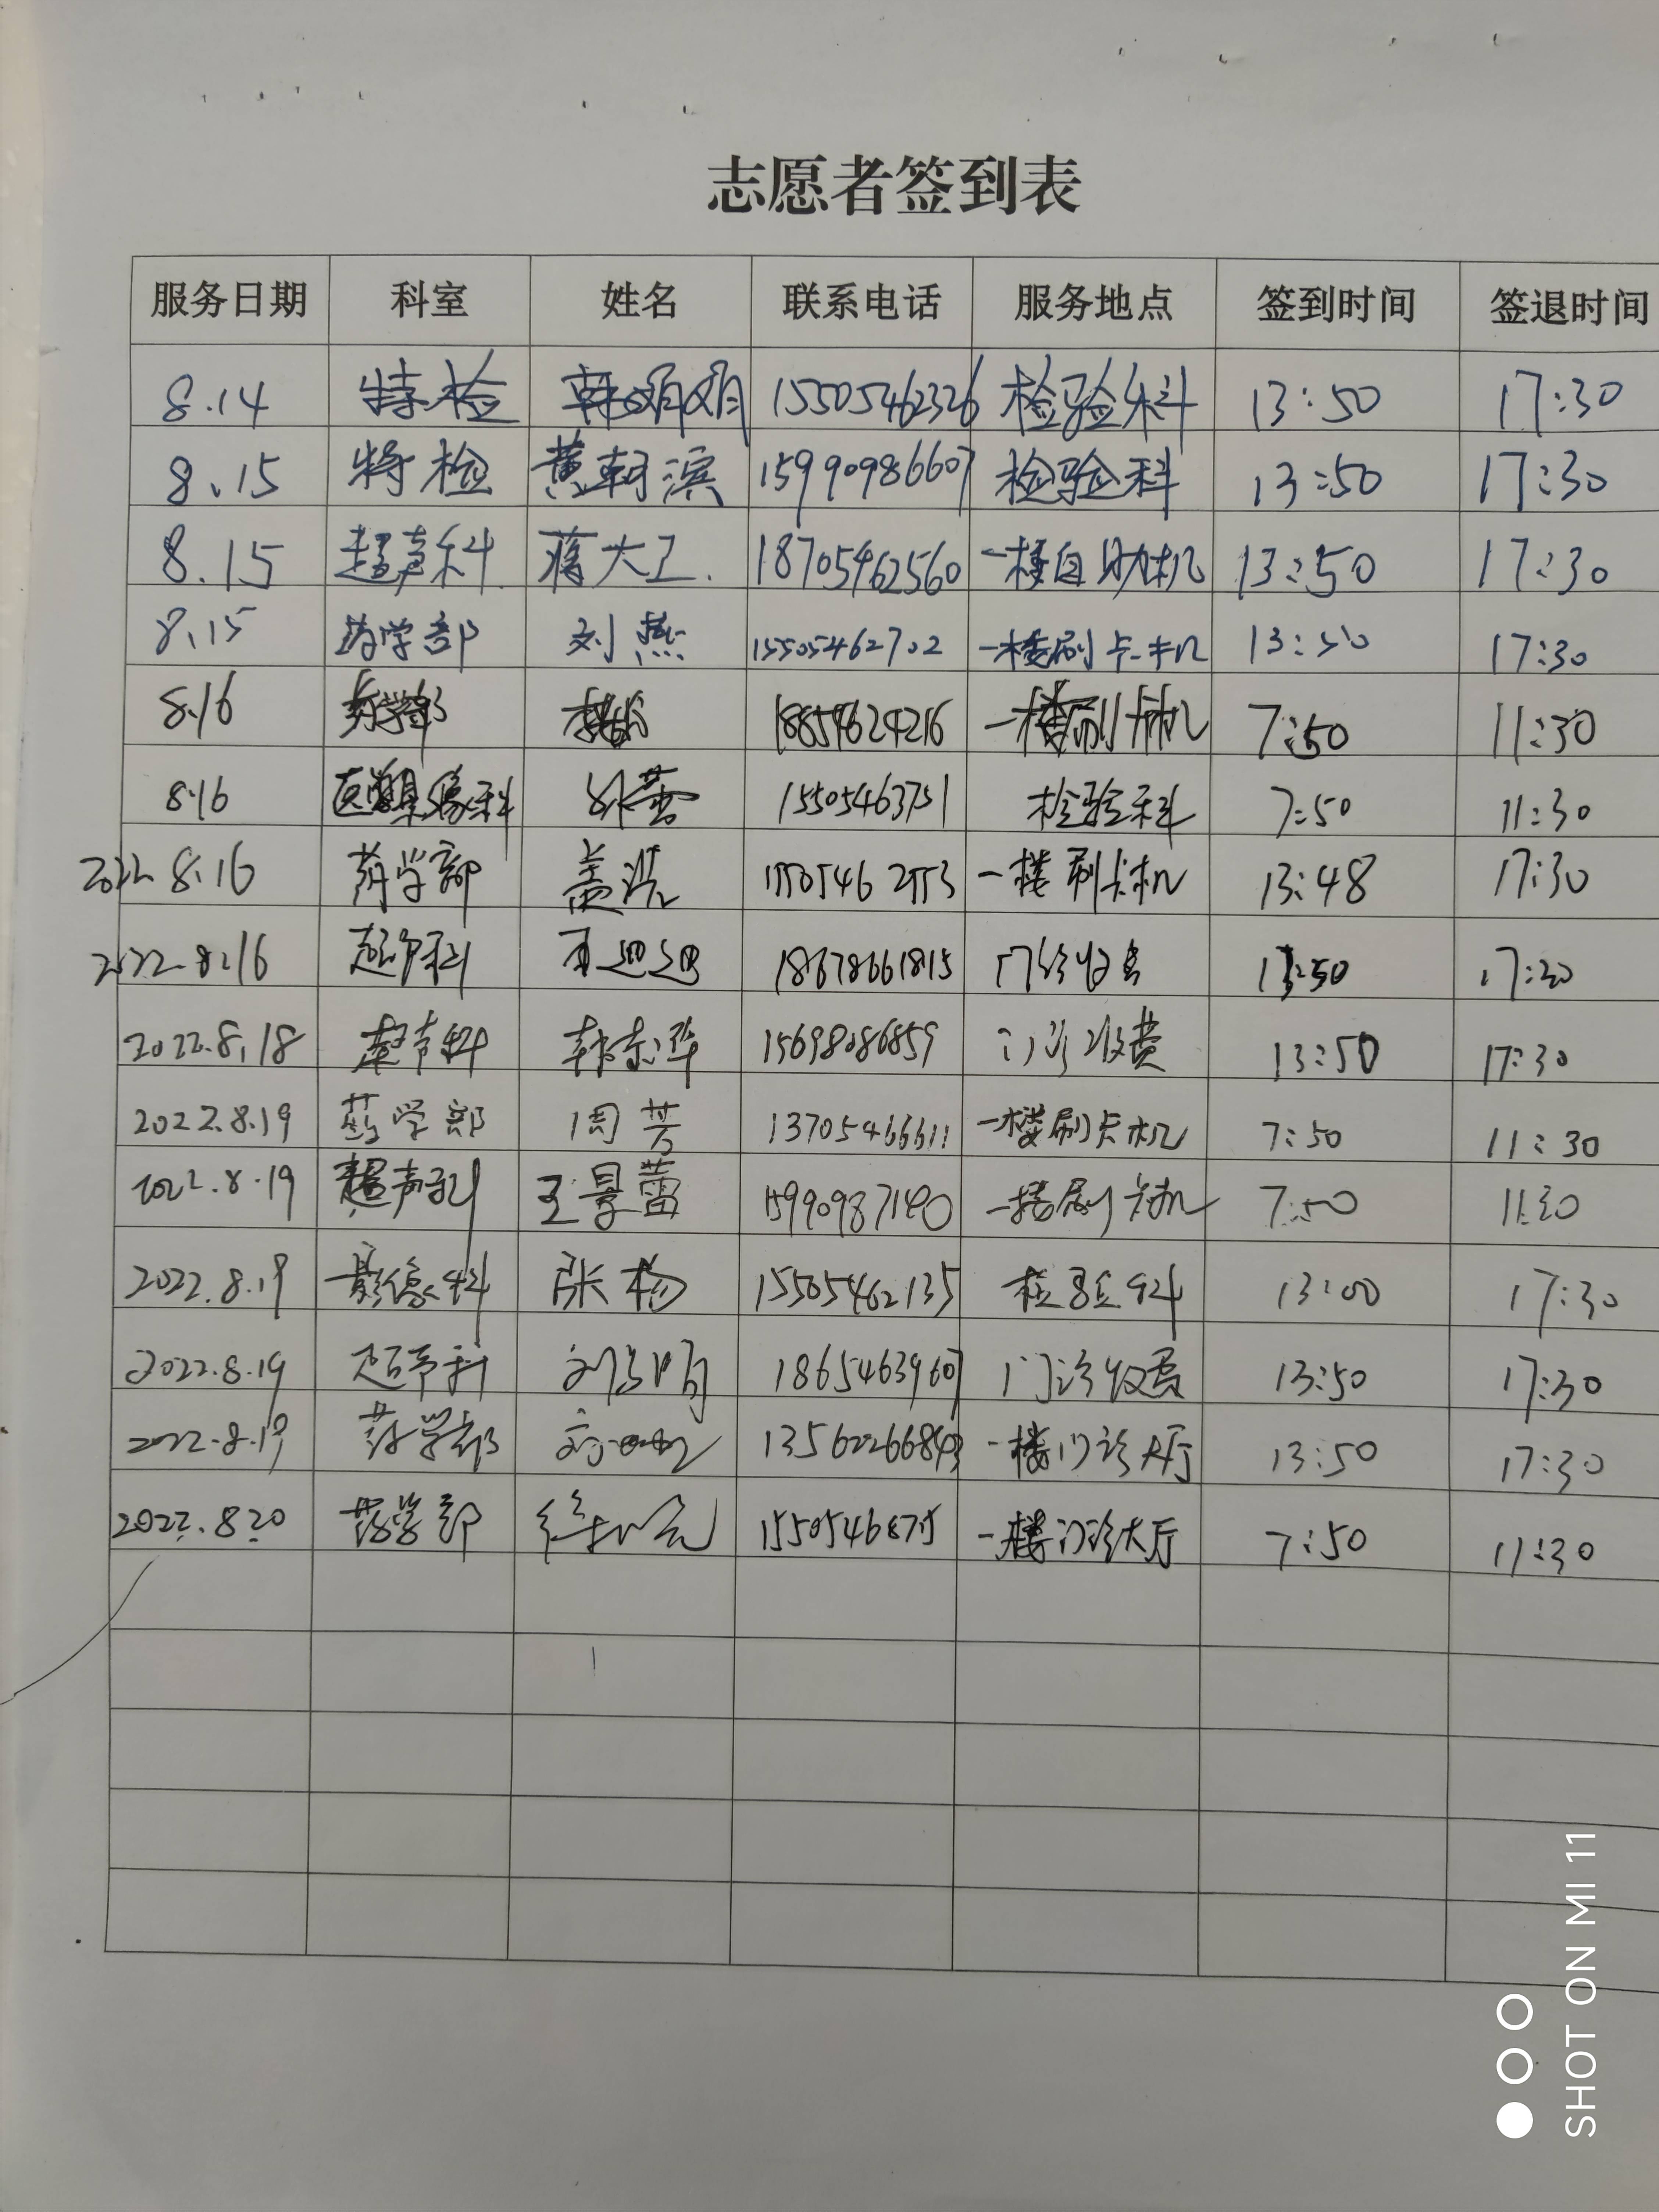 志愿者签到表
服务日期 科室 姓名 联系电话 服务地点 签到时间 签退时间
8.14 特检 韩娟娟 15505462326 检验科 13:50 17:30
8.15 特检 黄轲滨 15990986607 检验科 13:50 17:30
8.15 超声科 蒋大卫 18705462560 一楼自助机 13:50 17:30
8.15 药学部 刘燕 15505462702 一楼刷卡机 13:50 17:30
8.16 药学部 18859624216 一楼刷卡机 7:50 11:30
8.16 医学影像科 15505463751 检验科 7:50 11:30
2022.8.16 药学部 盖洪 15505462553 一楼刷卡机 13:48 17:30
2022.8.16 超声科 王迴迴 18678661815 门诊收费 13:50 17:30
2022.8.18 超声科 韩东华 15698086859 门诊收费 13:50 17:30
2022.8.19 药学部 周芳 13705466611 一楼刷卡机 7:50 11:30
2022.8.19 超声科 王景蕾 15990987140 一楼刷卡机 7:50 11:30
2022.8.19 影像科 张杨 15505462135 检验科 13:00 17:30
2022.8.19 超声科 18654639607 门诊收费 13:50 17:30
2022.8.19 药学部 一楼门诊大厅 13:50 17:30
2022.8.20 药学部 一楼门诊大厅 7:50 11:30
SHOT ON MI 11